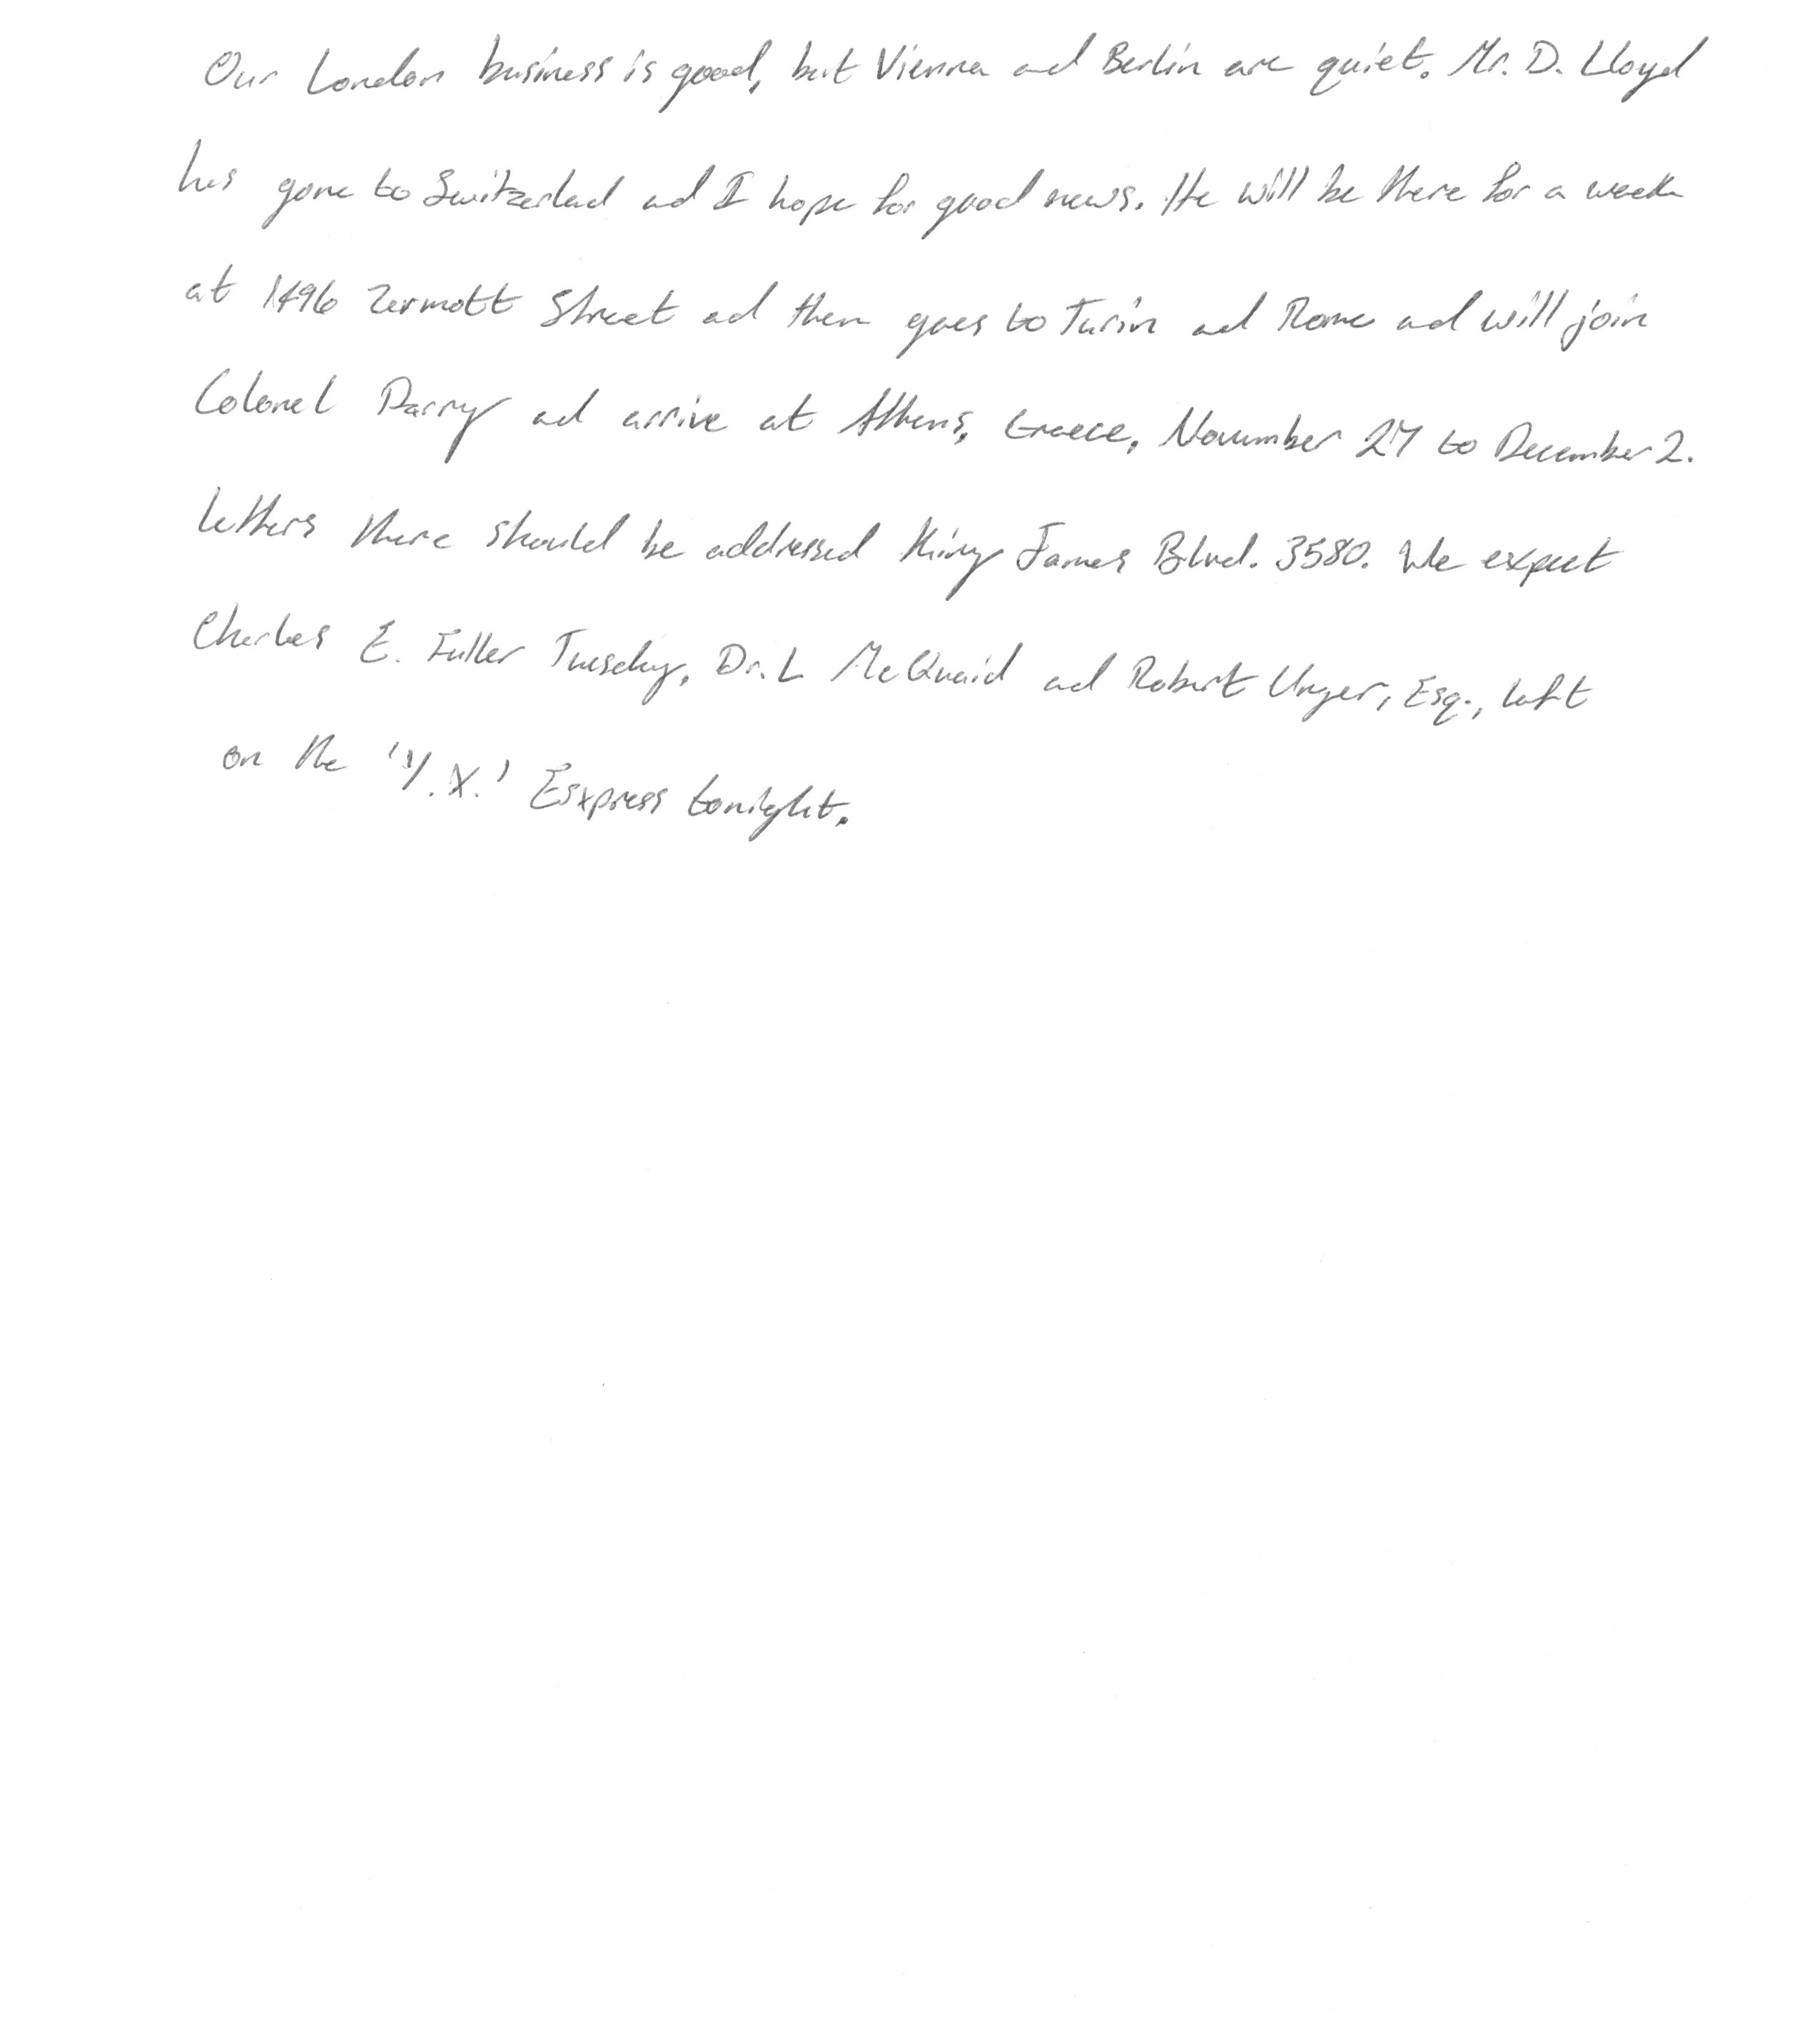 Our London business is good, but Vienna and Berlin are quiet. Mr. D. Lloyd
has gone to Switzerland and I hope for good news. He will be there for a week
at 1496 Zermott Street and then goes to Turin and Rome and will join
Colonel Parry and arrive at Athens, Greece, November 27 to December 2.
Letters there should be addressed King James Blvd. 3580. We expect
Charles E. Fuller Tuesday, Dr. L McQuaid and Robert Unger, Esq., left
on the 'Y.X.' Esxpress tonight.